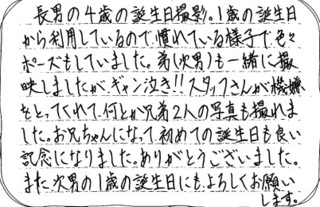 長男の4歳の誕生日撮影。1歳の誕生日
から利用しているので慣れている様子で色々
ポーズもしていました。弟(次男)も一緒に撮
映しましたが、ギャン泣き!!スタッフさんが機嫌
をとってくれて、何とか兄弟2人の写真も撮れま
した。お兄ちゃんになって初めての誕生日も良い
記念になりました。ありがとうございました。
また次男の1歳の誕生日にも、よろしくお願い
します。